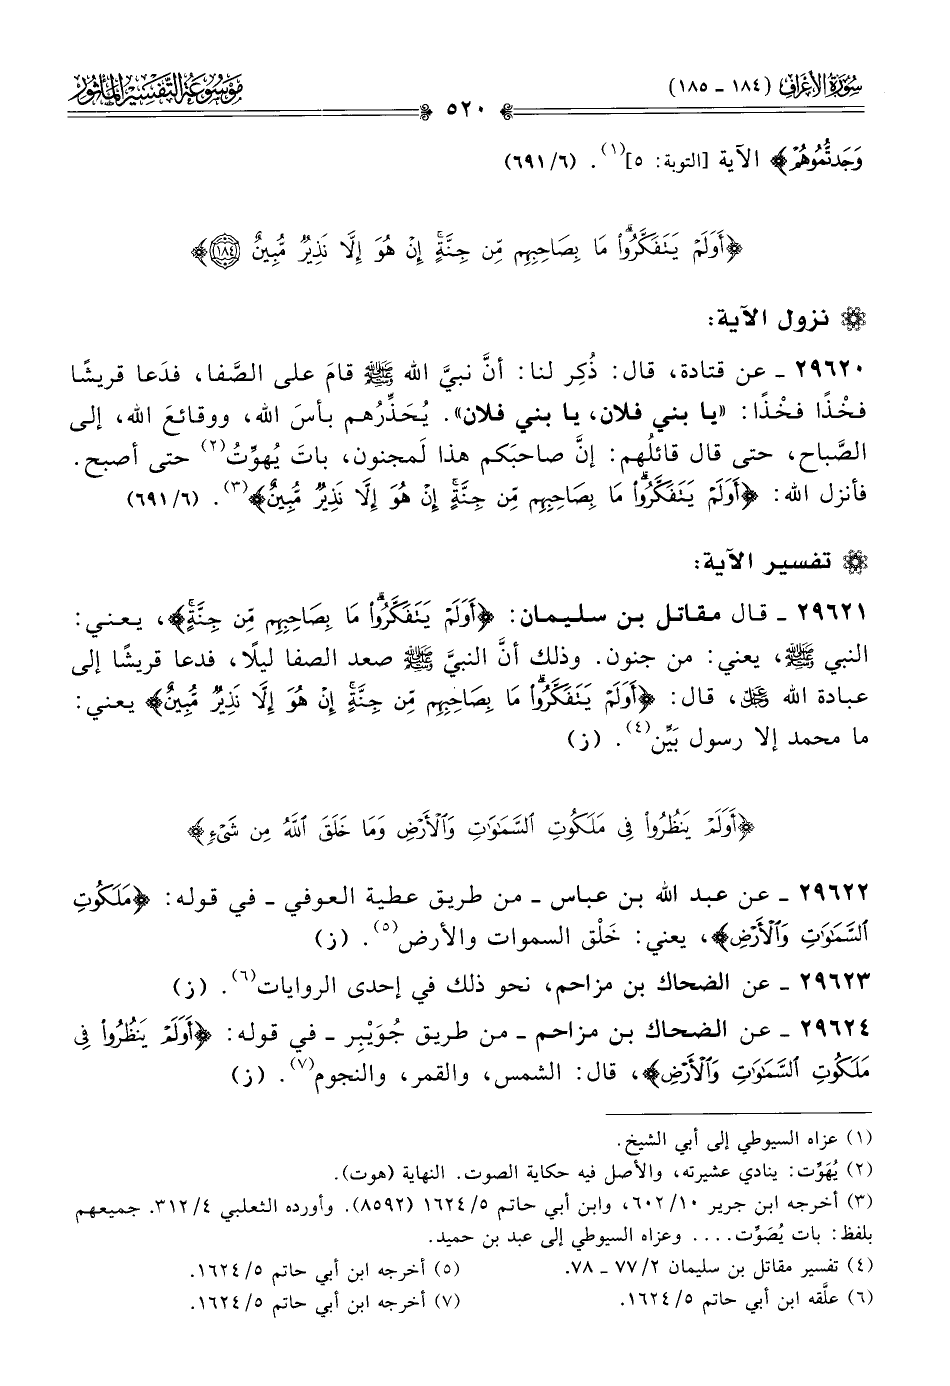 سُورَةُ الأَعْرَافِ (١٨٤ - ١٨٥)
٥٢٠
مَوْسُوعَةُ التَّفْسِيرِ المَأْثُورِ
وَجَدتُّمُوهُمْ﴾ الآية [التوبة: ٥](١). (٦/ ٦٩١)
﴿أَوَلَمْ يَتَفَكَّرُوا۟ ۗ مَا بِصَاحِبِهِم مِّن جِنَّةٍ ۚ إِنْ هُوَ إِلَّا نَذِيرٌ مُّبِينٌ ١٨٤﴾
نزول الآية:
٢٩٦٢٠ - عن قتادة، قال: ذُكِر لنا: أنَّ نبيَّ الله ﷺ قامَ على الصَّفا، فدَعا قريشًا
فخْذًا فخْذًا: «يا بني فلان، يا بني فلان». يُحَذِّرُهم بأسَ الله، ووقائعَ الله، إلى
الصَّباح، حتى قال قائلُهم: إنَّ صاحبَكم هذا لَمجنون، باتَ يُهوِّتُ(٢) حتى أصبح.
فأنزل الله: ﴿أَوَلَمْ يَتَفَكَّرُوا۟ ۗ مَا بِصَاحِبِهِم مِّن جِنَّةٍ ۚ إِنْ هُوَ إِلَّا نَذِيرٌ مُّبِينٌ﴾(٣). (٦/ ٦٩١)
تفسير الآية:
٢٩٦٢١ - قال مقاتل بن سليمان: ﴿أَوَلَمْ يَتَفَكَّرُوا۟ ۗ مَا بِصَاحِبِهِم مِّن جِنَّةٍ ۚ﴾، يعني:
النبي ﷺ، يعني: من جنون. وذلك أنَّ النبيَّ ﷺ صعد الصفا ليلًا، فدعا قريشًا إلى
عبادة الله ﷻ، قال: ﴿أَوَلَمْ يَتَفَكَّرُوا۟ ۗ مَا بِصَاحِبِهِم مِّن جِنَّةٍ ۚ إِنْ هُوَ إِلَّا نَذِيرٌ مُّبِينٌ﴾ يعني:
ما محمد إلا رسول بَيِّن(٤). (ز)
﴿أَوَلَمْ يَنظُرُوا۟ فِى مَلَكُوتِ ٱلسَّمَـٰوَٰتِ وَٱلْأَرْضِ وَمَا خَلَقَ ٱللَّهُ مِن شَىْءٍ﴾
٢٩٦٢٢ - عن عبد الله بن عباس - من طريق عطية العوفي - في قوله: ﴿مَلَكُوتِ
ٱلسَّمَـٰوَٰتِ وَٱلْأَرْضِ﴾، يعني: خَلْق السموات والأرض(٥). (ز)
٢٩٦٢٣ - عن الضحاك بن مزاحم، نحو ذلك في إحدى الروايات(٦). (ز)
٢٩٦٢٤ - عن الضحاك بن مزاحم - من طريق جُوَيْبِر - في قوله: ﴿أَوَلَمْ يَنظُرُوا۟ فِى
مَلَكُوتِ ٱلسَّمَـٰوَٰتِ وَٱلْأَرْضِ﴾، قال: الشمس، والقمر، والنجوم(٧). (ز)
(١) عزاه السيوطي إلى أبي الشيخ.
(٢) يُهَوِّت: ينادي عشيرته، والأصل فيه حكاية الصوت. النهاية (هوت).
(٣) أخرجه ابن جرير ١٠/ ٦٠٢، وابن أبي حاتم ٥/ ١٦٢٤ (٨٥٩٢). وأورده الثعلبي ٤/ ٣١٢. جميعهم
بلفظ: بات يُصَوِّت.... وعزاه السيوطي إلى عبد بن حميد.
(٤) تفسير مقاتل بن سليمان ٢/ ٧٧ - ٧٨.
(٥) أخرجه ابن أبي حاتم ٥/ ١٦٢٤.
(٦) علَّقه ابن أبي حاتم ٥/ ١٦٢٤.
(٧) أخرجه ابن أبي حاتم ٥/ ١٦٢٤.